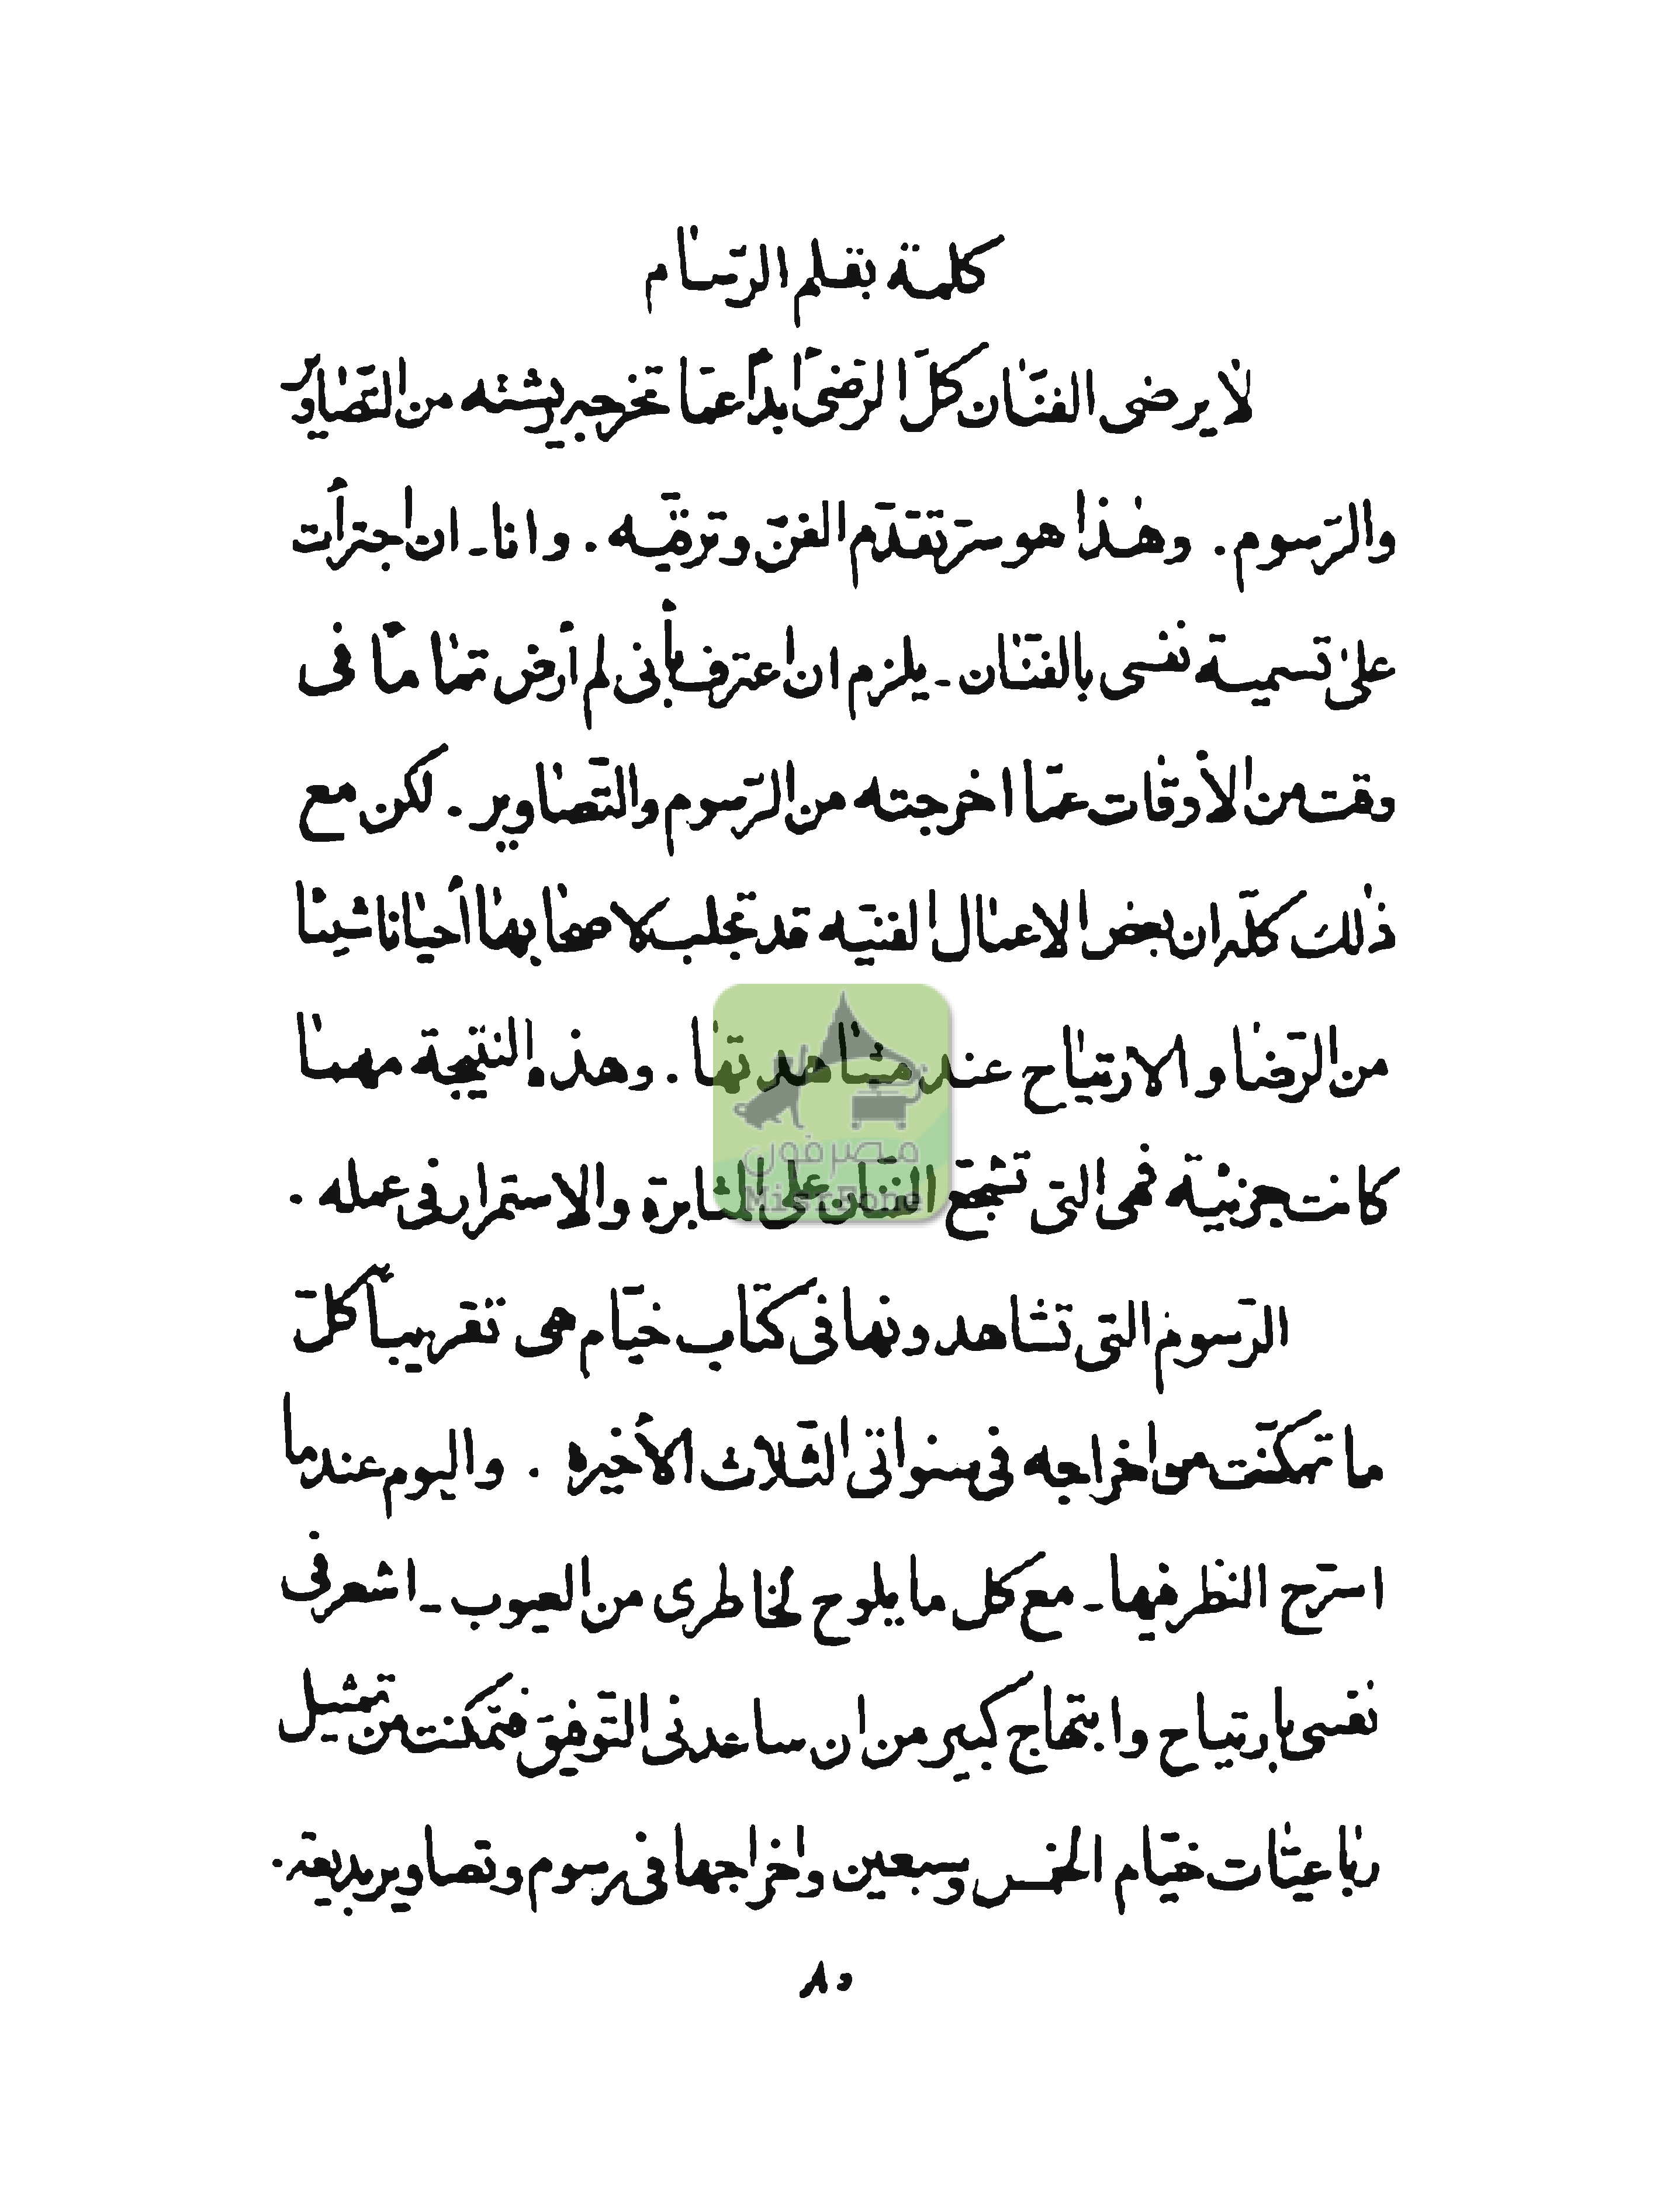 كلمة بقلم الرّسام
لا يرضى الفنّان كلّ الرّضىٰ أبداً عمّا تخرجه ريشته من التّصاوير
والرّسوم . وهذا هو سرّ تقدّم الفنّ وترقّيه . وانا ـ ان اجترأت
على تسمية نفسى بالفنّان ـ يلزم ان اعترف بأنى لم أرض تماماً فى
وقت من الأوقات عمّا اخرجته من الرّسوم والتّصاوير . لكن مع
ذلك كلّه ان بعض الاعمال الفنيّه قد تجلب لاصحابها أحيانا شيئا
من الرّضا و الارتياح عند مشاهدتها . وهذه النتيجة مهما
كانت جزئية فهى التى تشجّع الفنّان على المثابرة والاستمرار فى عمله .
الرّسوم التى تشاهدونها فى كتاب خيّام هى تقريباً كلّ
ما تمكّنت من اخراجه فى سنواتى الثّلاث الأخيرة . واليوم عندما
اسرّح النظر فيها ـ مع كل ما يلوح لخاطرى من العيوب ـ اشعر فى
نفسى بارتياح وابتهاج كبير من ان ساعدنى التّوفيق فتمكنت من تمثيل
رباعيّات خيّام الخمس وسبعين واخراجها فى رسوم وتصاوير بديعة .
٨٥
مصرفون
MisrFone